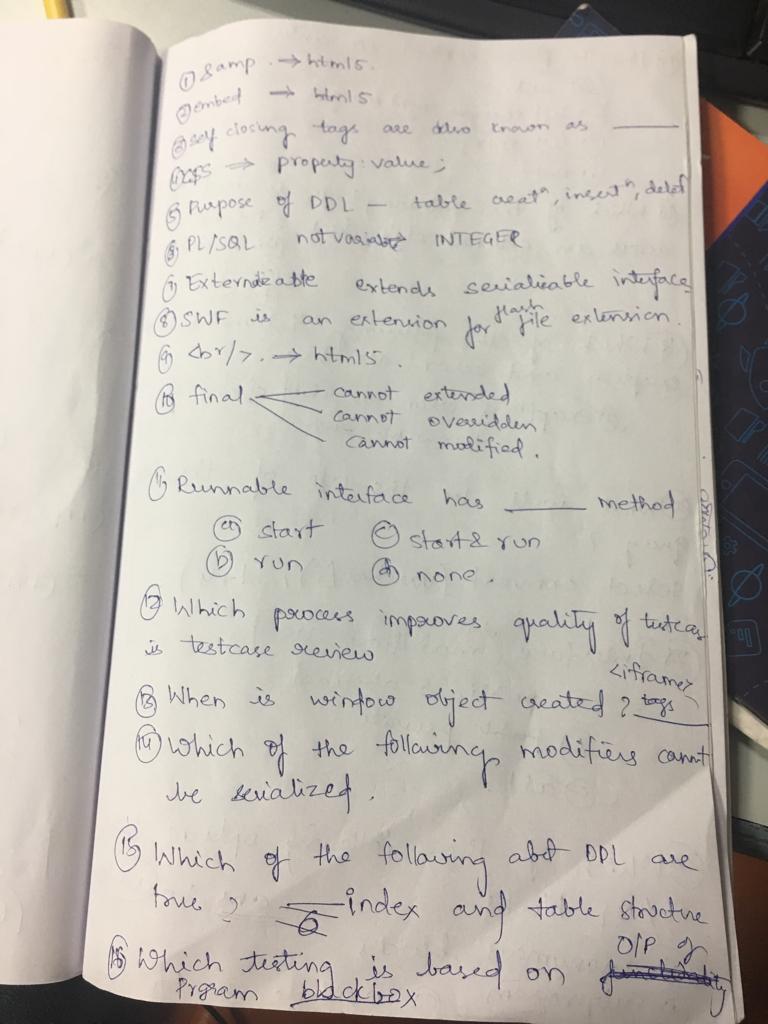 ① &amp. → html5.
② embed → html5
③ self closing tags are also known as ____
④ CSS → property: value;
⑤ Purpose of DDL – table creatⁿ, insertⁿ, delet
⑥ PL/SQL not variable → INTEGER
⑦ Externizeable extends serializable interface
⑧ SWF is an extension for flash file extension.
⑨ <br/>. → html5.
⑩ final cannot extended
cannot overidden
cannot modified.
⑪ Runnable interface has ____ method
ⓐ start ⓒ start & run
ⓑ run ⓓ none.
⑫ Which process improves quality of testcas
is testcase review
⑬ When is window object created? <iframe> tags
⑭ Which of the following modifiers cannt
be serialized.
⑮ Which of the following abt DDL are
true? index and table structure
⑯ Which testing is based on O/P of
Prgram blackbox